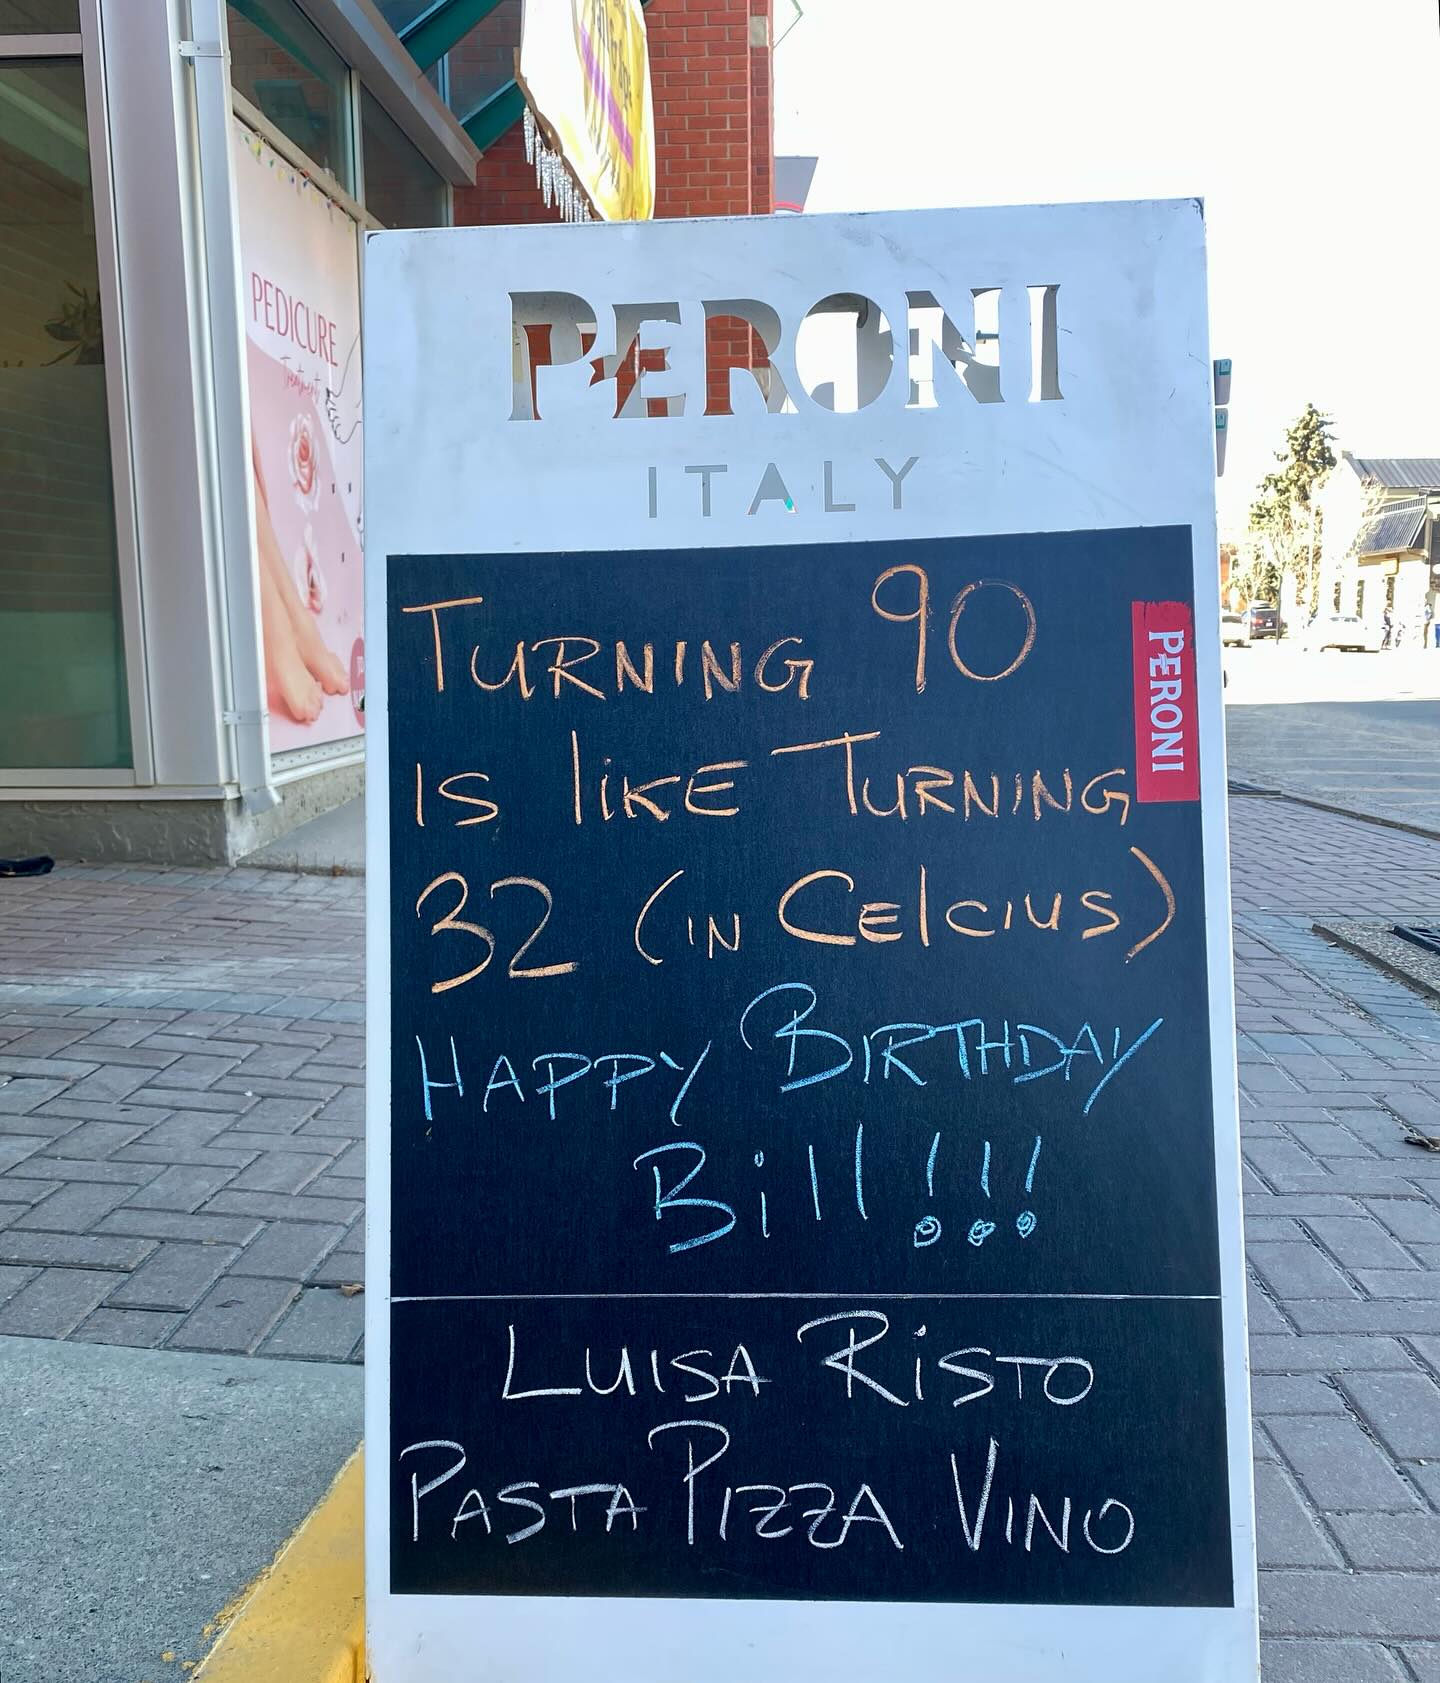 PEDICURE
Treatment
PERONI
ITALY
PERONI
TURNING 90
IS liKE TURNING
32 (IN CElCIUS)
HAPPY BIRTHDAY
Bill!!!
LUISA RISTO
PASTA PIZZA VINO